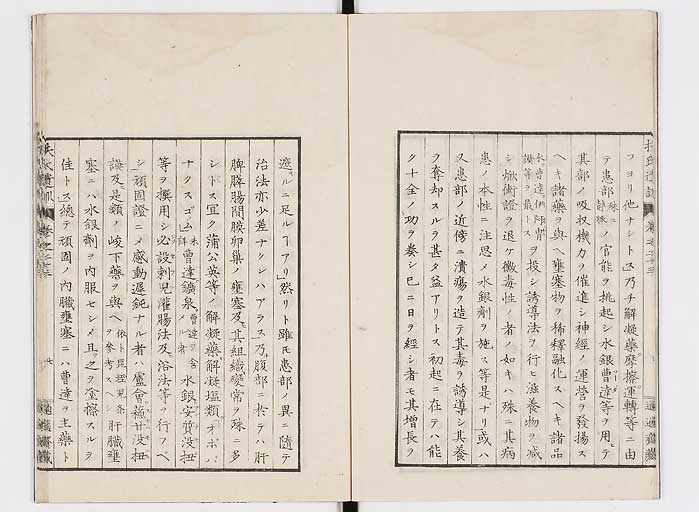 フヨリ他ナシトス乃チ解凝藥摩擦運轉等ニ由
テ患部殊ニ静脈ノ官能ヲ挑起シ水銀曹達等ヲ用テ
其部ノ吸収機力ヲ催進シ神經ノ運營ヲ發揚ス
ヘキ諸藥ヲ與ヘ壅塞物ヲ稀釋融化スヘキ諸品
ヲ投シ誘導法ヲ行ヒ滋養物ヲ減
シ焮衝證ヲ退ケ黴毒性ノ者ノ如キハ殊ニ其病
患ノ本性ニ注思メ水銀劑ヲ施ス等是ナリ或ハ
又患部ノ近傍ニ潰瘍ヲ造テ其毒ヲ誘導シ其養
ヲ奪却スルヲ甚タ益アリトス初起ニ在テハ能
ク十全ノ功ヲ奏シ已ニ日ヲ經シ者モ其增長ヲ
遮ルニ足ルヿアリ然リト雖モ患部ノ異ニ隨テ
治法亦少差ナクンハアラス乃腹部ニ於テハ肝
脾膵腸間膜卵巢ノ壅塞及其組織變常ヲ殊ニ多
シトス宜ク蒲公英等ノ解凝藥解凝塩類オポパ
ナクスゴム曹達鑛泉水銀安質没扭
等ヲ撰用シ必設刺兒灌腸法及浴法等ヲ行フヘ
シ頑固證ニメ感動遅鈍ナル者ハ蘆會
及是類ノ峻下藥ヲ與ヘ肝臓壅
塞ニハ水銀劑ヲ内服セシメ且之ヲ塗擦スルヲ
佳トス總テ頑固ノ内臓壅塞ニハ曹達ヲ主藥ト